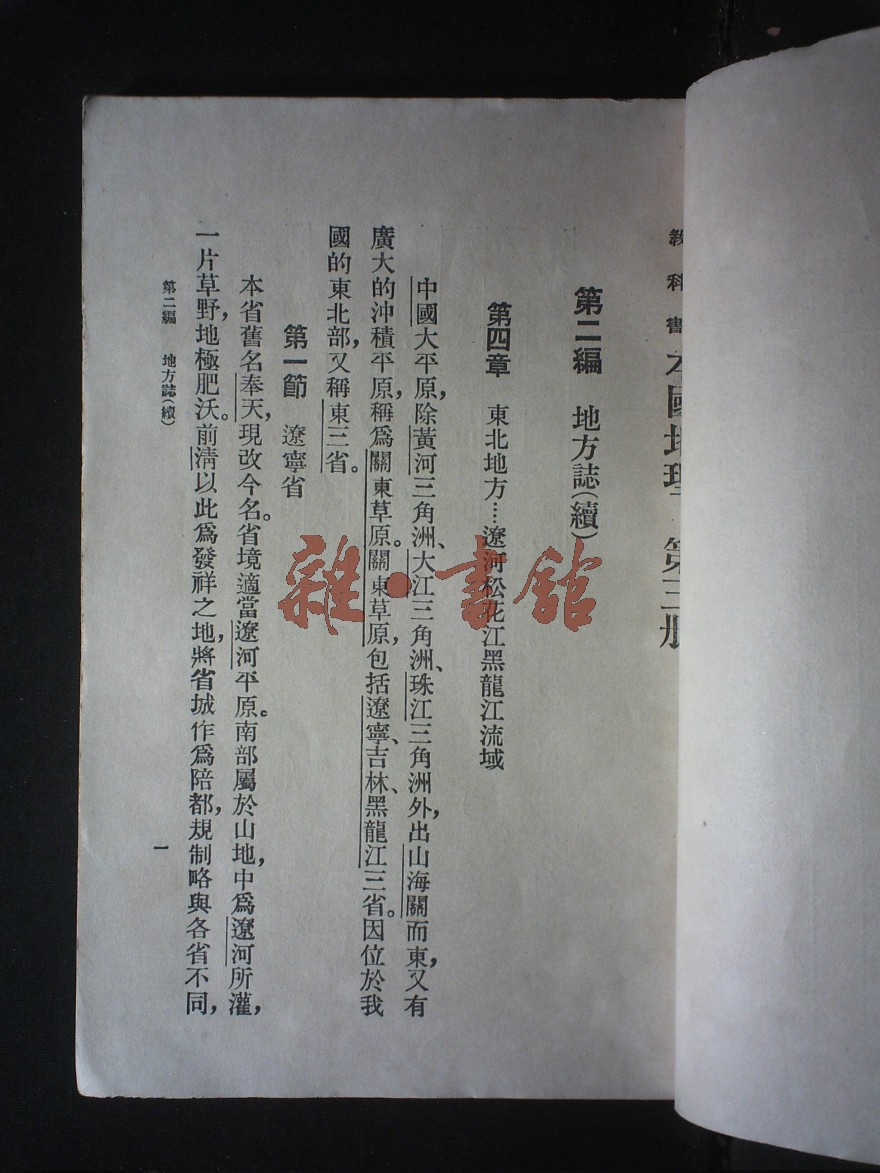 教科書 本國地理 第三册
第二編 地方誌(續)
第四章 東北地方…遼河松花江黑龍江流域
中國大平原,除黃河三角洲、大江三角洲、珠江三角洲外,出山海關而東,又有
廣大的沖積平原,稱爲關東草原。關東草原,包括遼寧、吉林、黑龍江三省。因位於我
國的東北部,又稱東三省。
第一節 遼寧省
本省舊名奉天,現改今名。省境適當遼河平原。南部屬於山地,中爲遼河所灌,
一片草野,地極肥沃。前清以此爲發祥之地,將省城作爲陪都,規制略與各省不同,
第二編 地方誌(續)
一
雜·書館